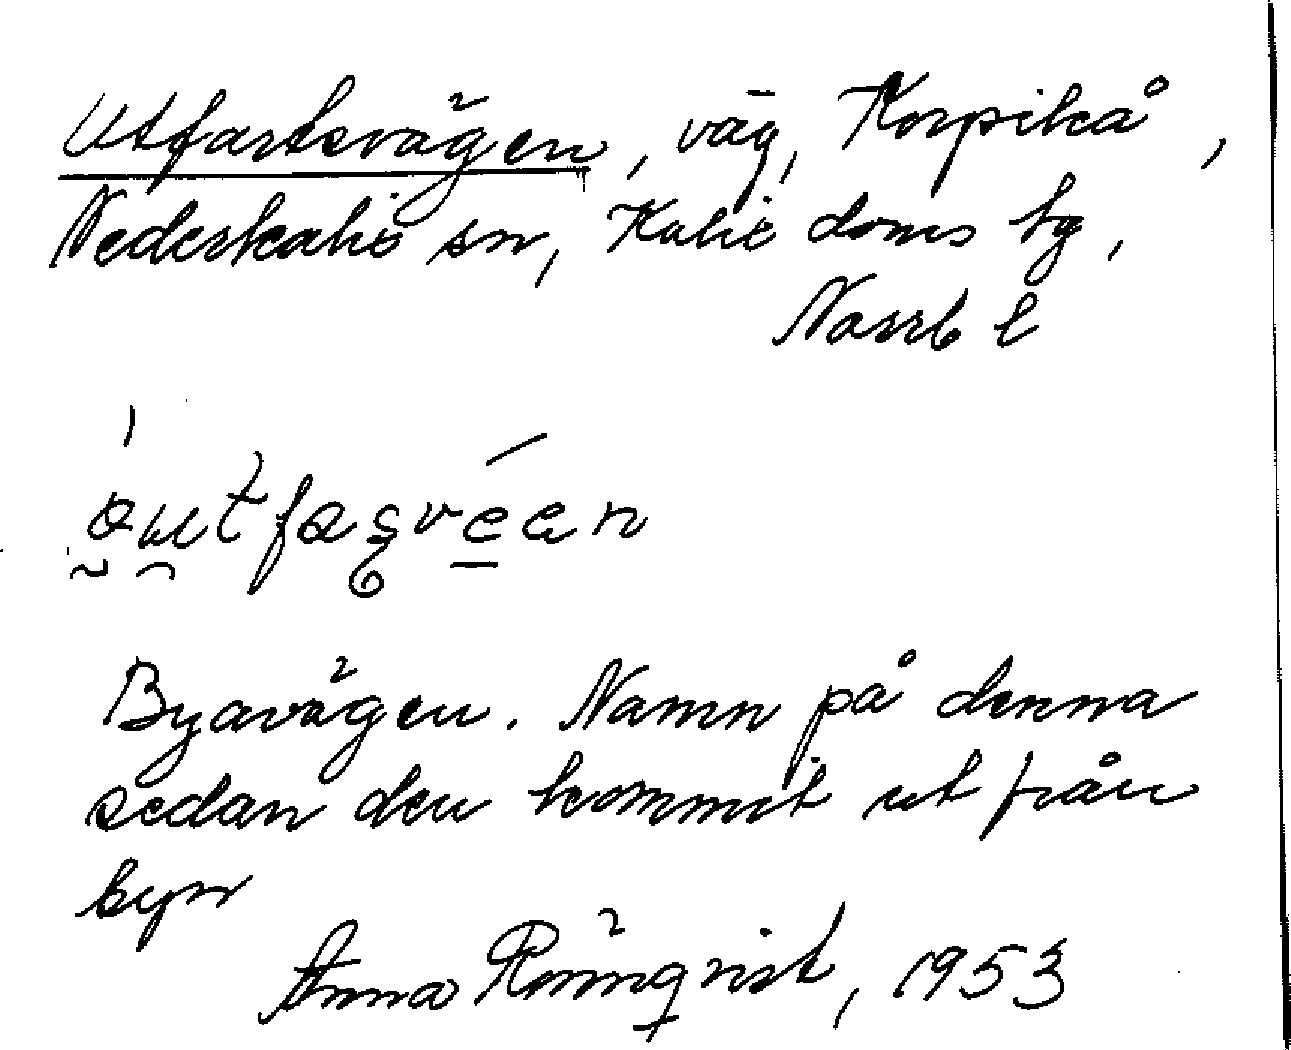 Utfartsvägen, väg, Korpikå,
Nederkalix sn, Kalix doms tg,
Norrb l
Byavägen. Namn på denna
sedan den kommit ut från
byn
Anna Rönnqvist, 1953